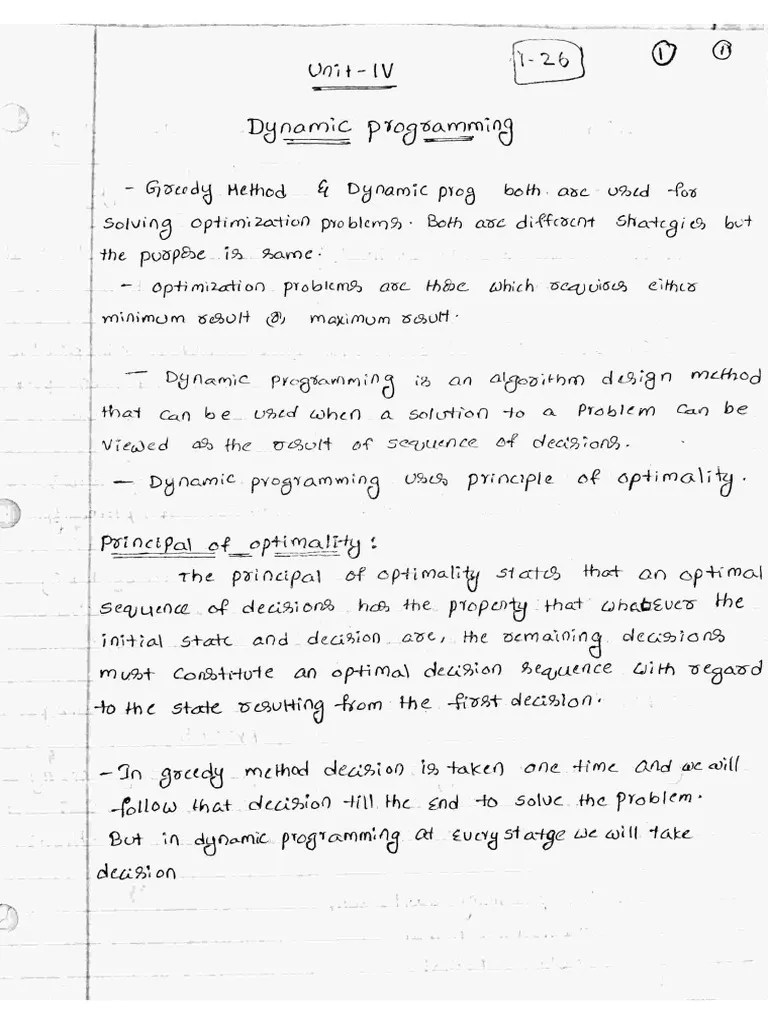 Unit-IV
1-26
1 1
Dynamic programming
- Greedy Method & Dynamic prog both are used for
solving optimization problems. Both are different strategies but
the purpose is same.
- optimization problems are those which requires either
minimum result (or) maximum result.
- Dynamic programming is an algorithm design method
that can be used when a solution to a Problem can be
viewed as the result of sequence of decisions.
- Dynamic programming uses principle of optimality.
Principal of optimality:
The principal of optimality states that an optimal
sequence of decisions has the property that whatever the
initial state and decision are, the remaining decisions
must constitute an optimal decision sequence with regard
to the state resulting from the first decision.
- In greedy method decision is taken one time and we will
follow that decision till the end to solve the problem.
But in dynamic programming at every statge we will take
decision